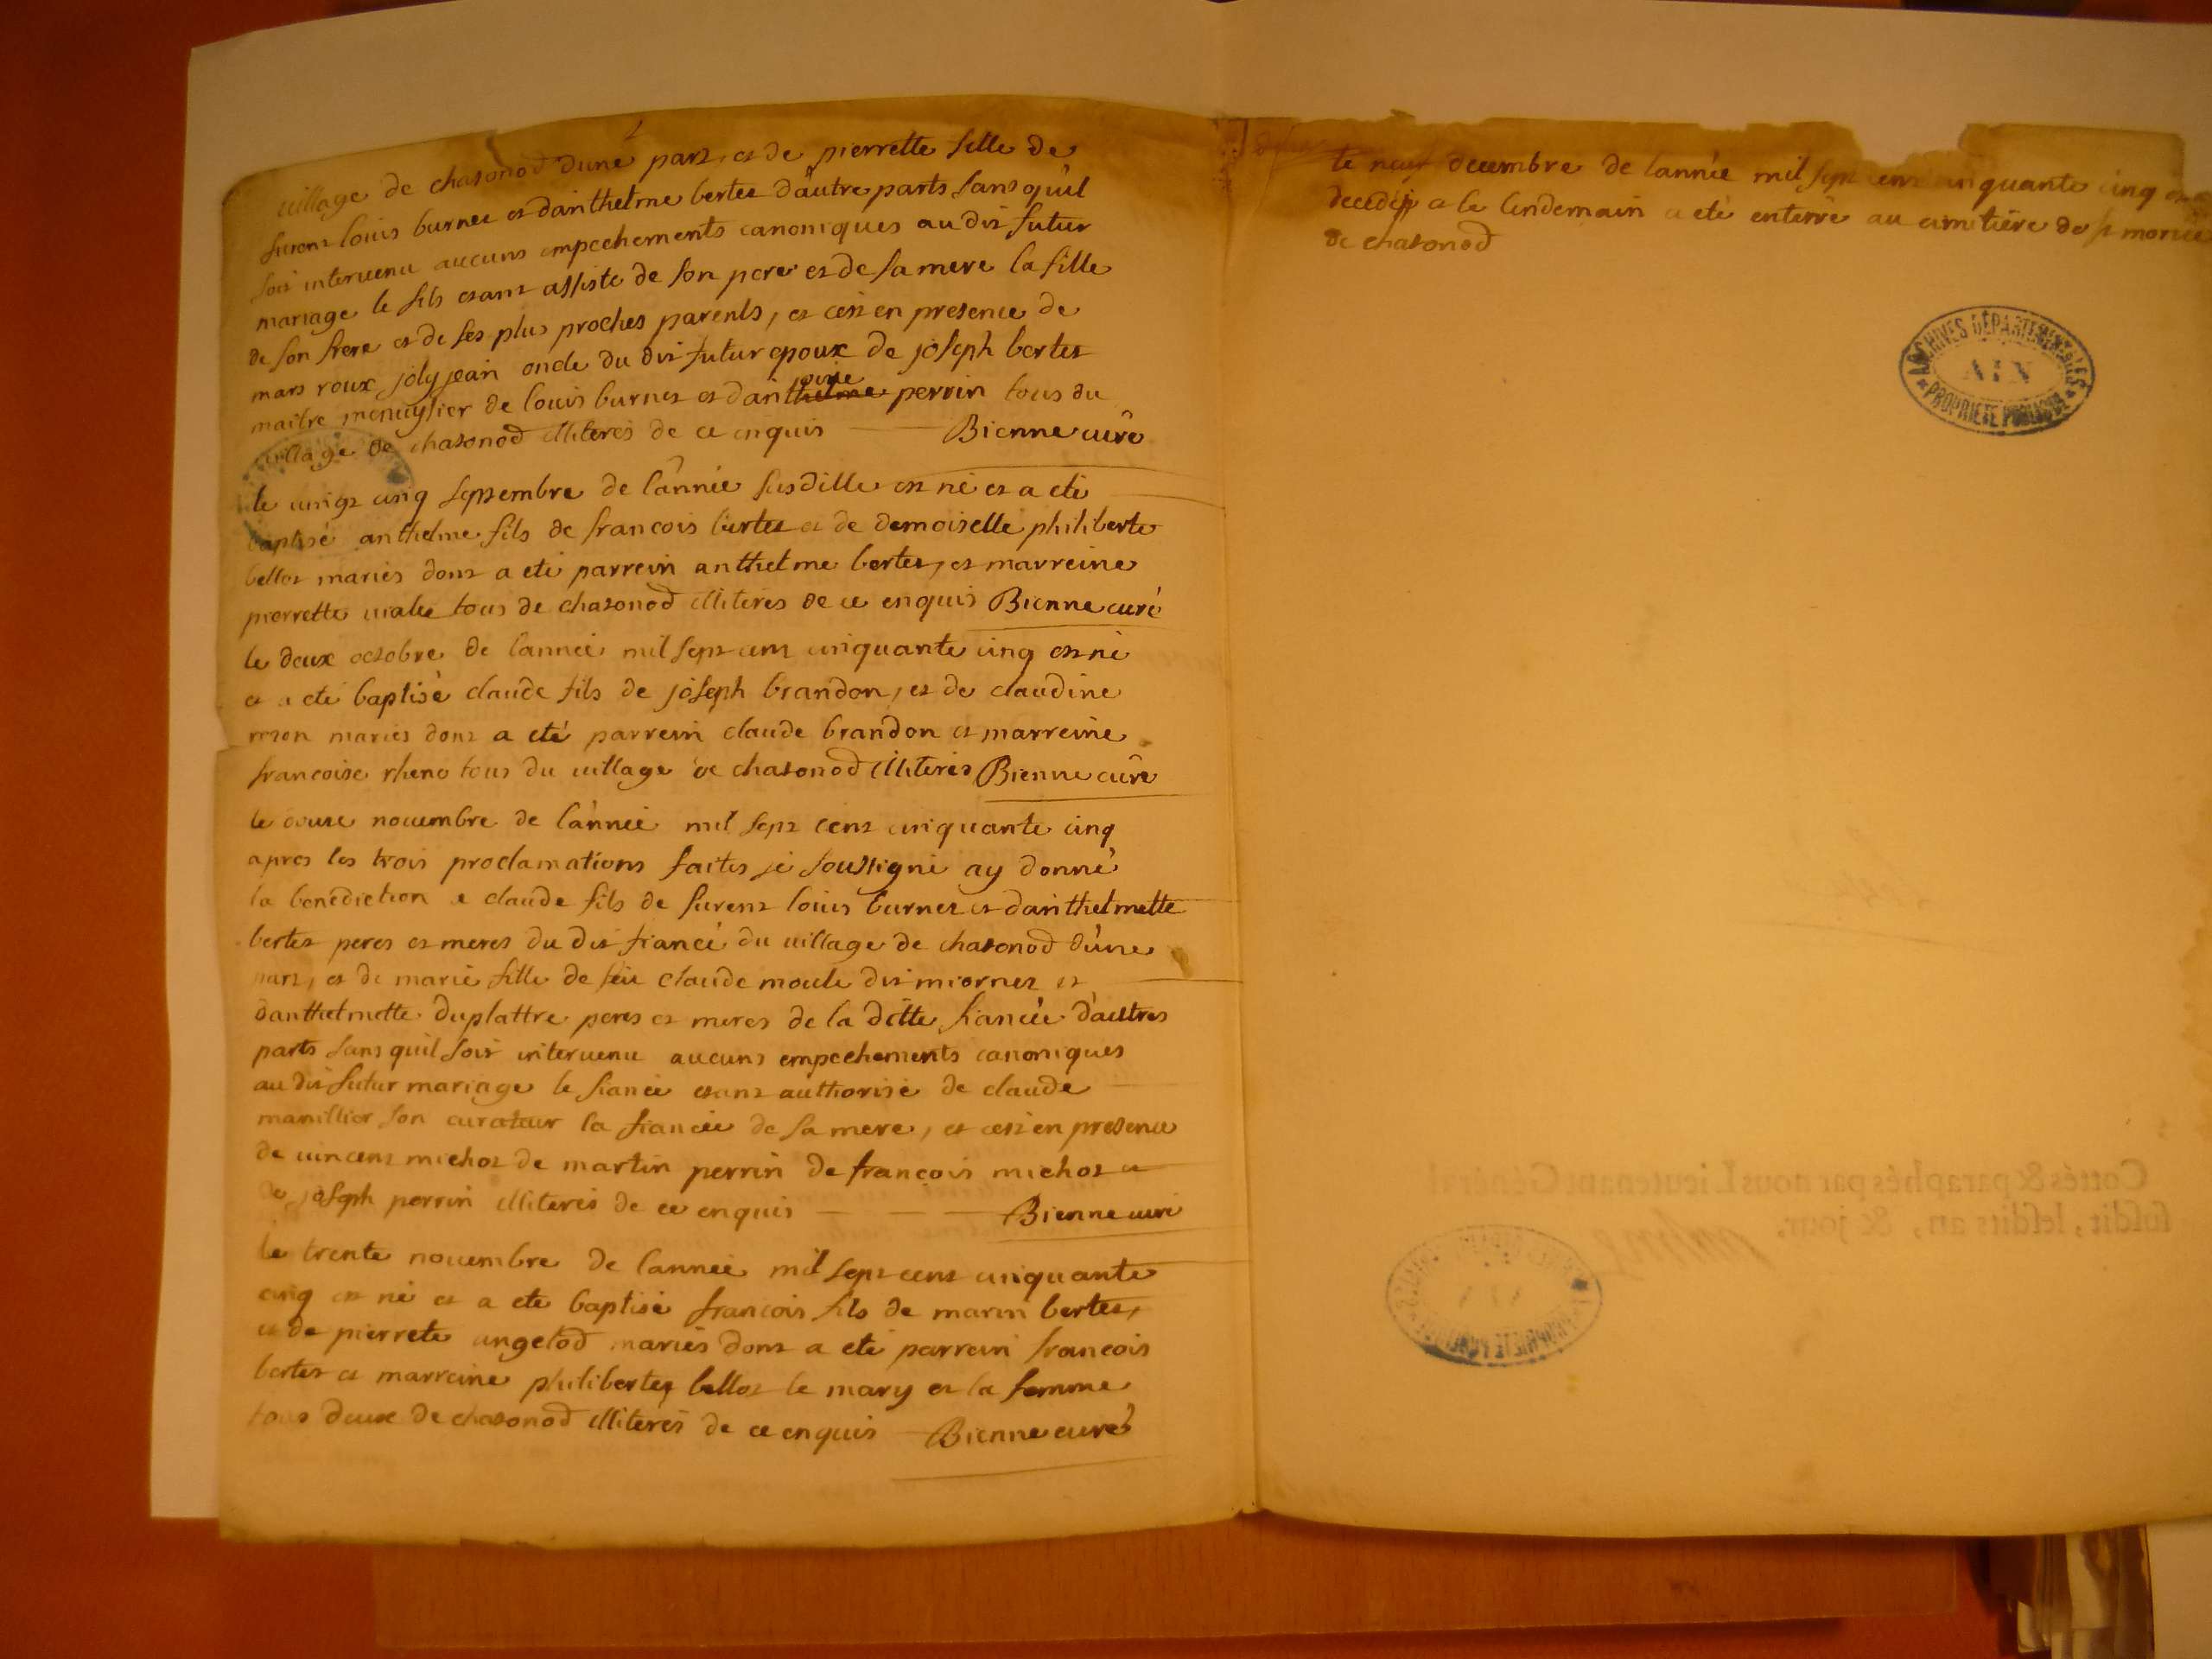 village de chatonod dune part, et de pierrette fille de
furent louis burnet et danthelme bertet dautre parts sans quil
soit intervenu aucuns empechements canoniques au dit futur
mariage le fils etant assisté de son pere et de sa mere la fille
de son frere et de ses plus proches parents, et cest en presence de
mars roux joly jean oncle du dit futur epoux de joseph bertet
maitre menuysier de louis burnet et dan perrin tous du
village de chatonod illiterés de ce enquis Bienne curé
le vingt cinq septembre de l'année susditte est né et a eté
baptisé anthelme fils de francois bertet et de demoiselle philiberte
bellot mariés dont a eté parrein anthelme bertet, et marreine
pierrette vialet tous de chatonod illiterés de ce enquis Bienne curé
le deux octobre de lannée mil sept cent cinquante cinq est né
et a eté baptisé claude fils de joseph brandon, et de claudine
mariés dont a eté parrein claude brandon et marreine
francoise rheno tous du village de chatonod illiterés Bienne curé
le novembre de l'année mil sept cent cinquante cinq
apres les trois proclamations faites je soussigné ay donné
la benediction a claude fils de furent louis burnet et danthelmette
bertet peres et meres du dit fiancé du village de chatonod d'une
part, et de marie fille de feu claude moule dit miornet et
danthelmette duplattre peres et meres de la ditte fiancée d'autres
parts sans quil soit intervenu aucuns empechements canoniques
au dit futur mariage le fiancé etant authorisé de claude
manillier son curateur la fiancée de sa mere, et cest en presence
de vincent michot de martin perrin de francois michot et
de joseph perrin illiterés de ce enquis Bienne curé
le trente novembre de lannée mil sept cent cinquante
cinq est né et a eté baptisé francois fils de marin bertet,
et de pierrete angelod mariés dont a eté parrain francois
bertet et marreine philiberte bellot le mary et la femme
tous deux de chatonod illiterés de ce enquis Bienne curé
le neuf decembre de lannée mil sept cent cinquante cinq est
decedé et le lendemain a eté enterré au cimetière de st
de chatonod
ARCHIVES DÉPARTEMENTALES
AIN
PROPRIETE PUBLIQUE
Cottés & paraphés par nous Lieutenant Général
susdit, lesdits an, & jour.